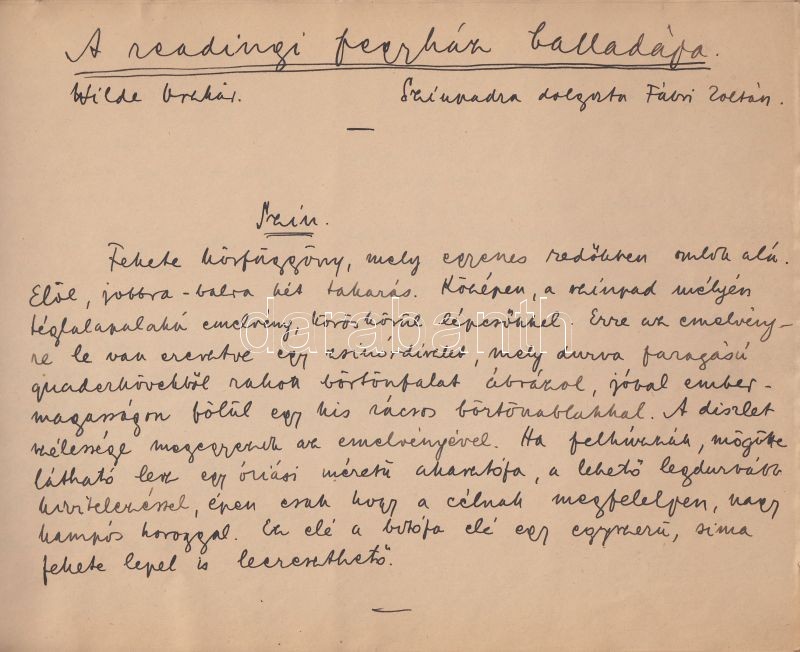 A readingi fegyház balladája.
Wilde Oszkár. Színpadra dolgozta Fábri Zoltán.
Szín.
Fekete körfüggöny, mely egyenes redőkben omlik alá.
Elől, jobbra-balra két takarás. Középen, a színpad mélyén
téglalapalakú emelvény, köröskörül lépcsőkkel. Erre az emelvény-
re le van eresztve egy zsinórdíszlet, mely durva faragású
quaderkövekből rakott börtönfalat ábrázol, jóval ember-
magasságon fölül egy kis rácsos börtönablakkal. A díszlet
szélessége megegyezik az emelvényével. Ha felhúzzák, mögötte
látható lesz egy óriási méretű akasztófa, a lehető legdurvább
kivitelezéssel, épen csak hogy a célnak megfeleljen, nagy
kampós horoggal. Ez elé a bitófa elé egy egyszerű, sima
fekete lepel is leereszthető.
darabanth